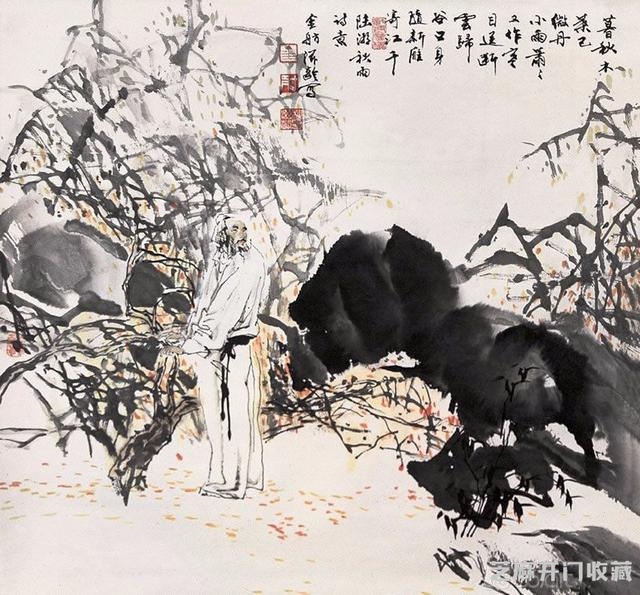 暮秋木
葉已
微丹
小雨蕭々
又作寒
目送斷
雲歸
谷口身
隨新雁
寄江干
陸游秋雨
詩意
芝麻开门收藏